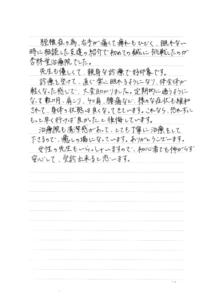 頸椎症の為、右手が痛くて痺れもひどく、眠れない
時に相談した友達の紹介で初めての鍼に挑戦したのが
杏林堂治療院でした。
先生も優しくて、親身な診療で好印象です。
診療を受けて、良く深く眠れるようになり、体全体が
軽くなった感じで、大変助かりました。定期的に通うように
なって数ヶ月、肩こり、手の肩、腰痛など、様々な症状も緩和
されて、身体の状態は良くなってきています。これなら、恐れずに
もっと早く行けば良かったと後悔しています。
治療院も清潔感があって、とても丁寧に治療をして
下さるので、癒しの場になっています。ありがとうございます。
女性の先生もいらっしゃいますので、初心者でも怖がらず
安心して、受診出来ると思います。